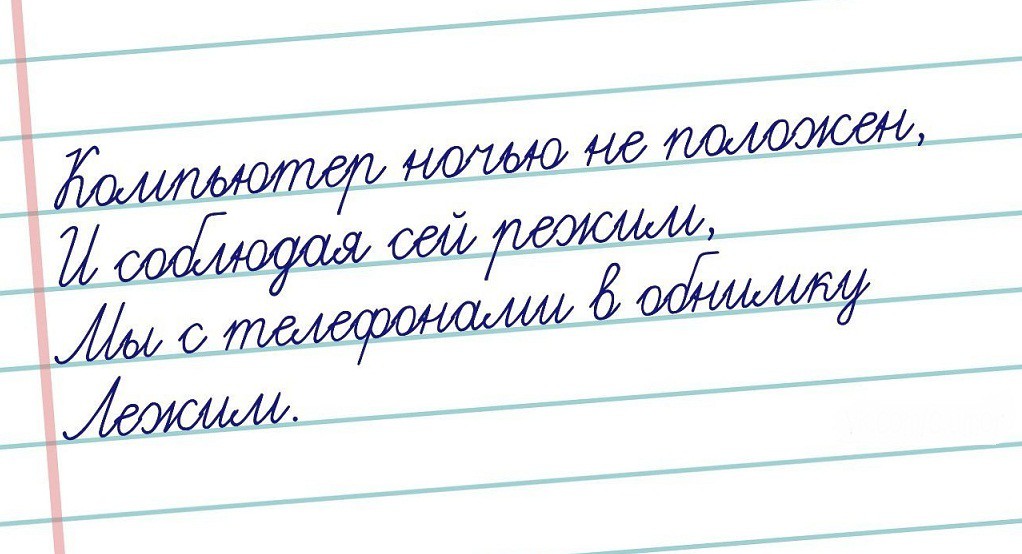 Компьютер ночью не положен,
И соблюдая сей режим,
Мы с телефонами в обнимку
Лежим.